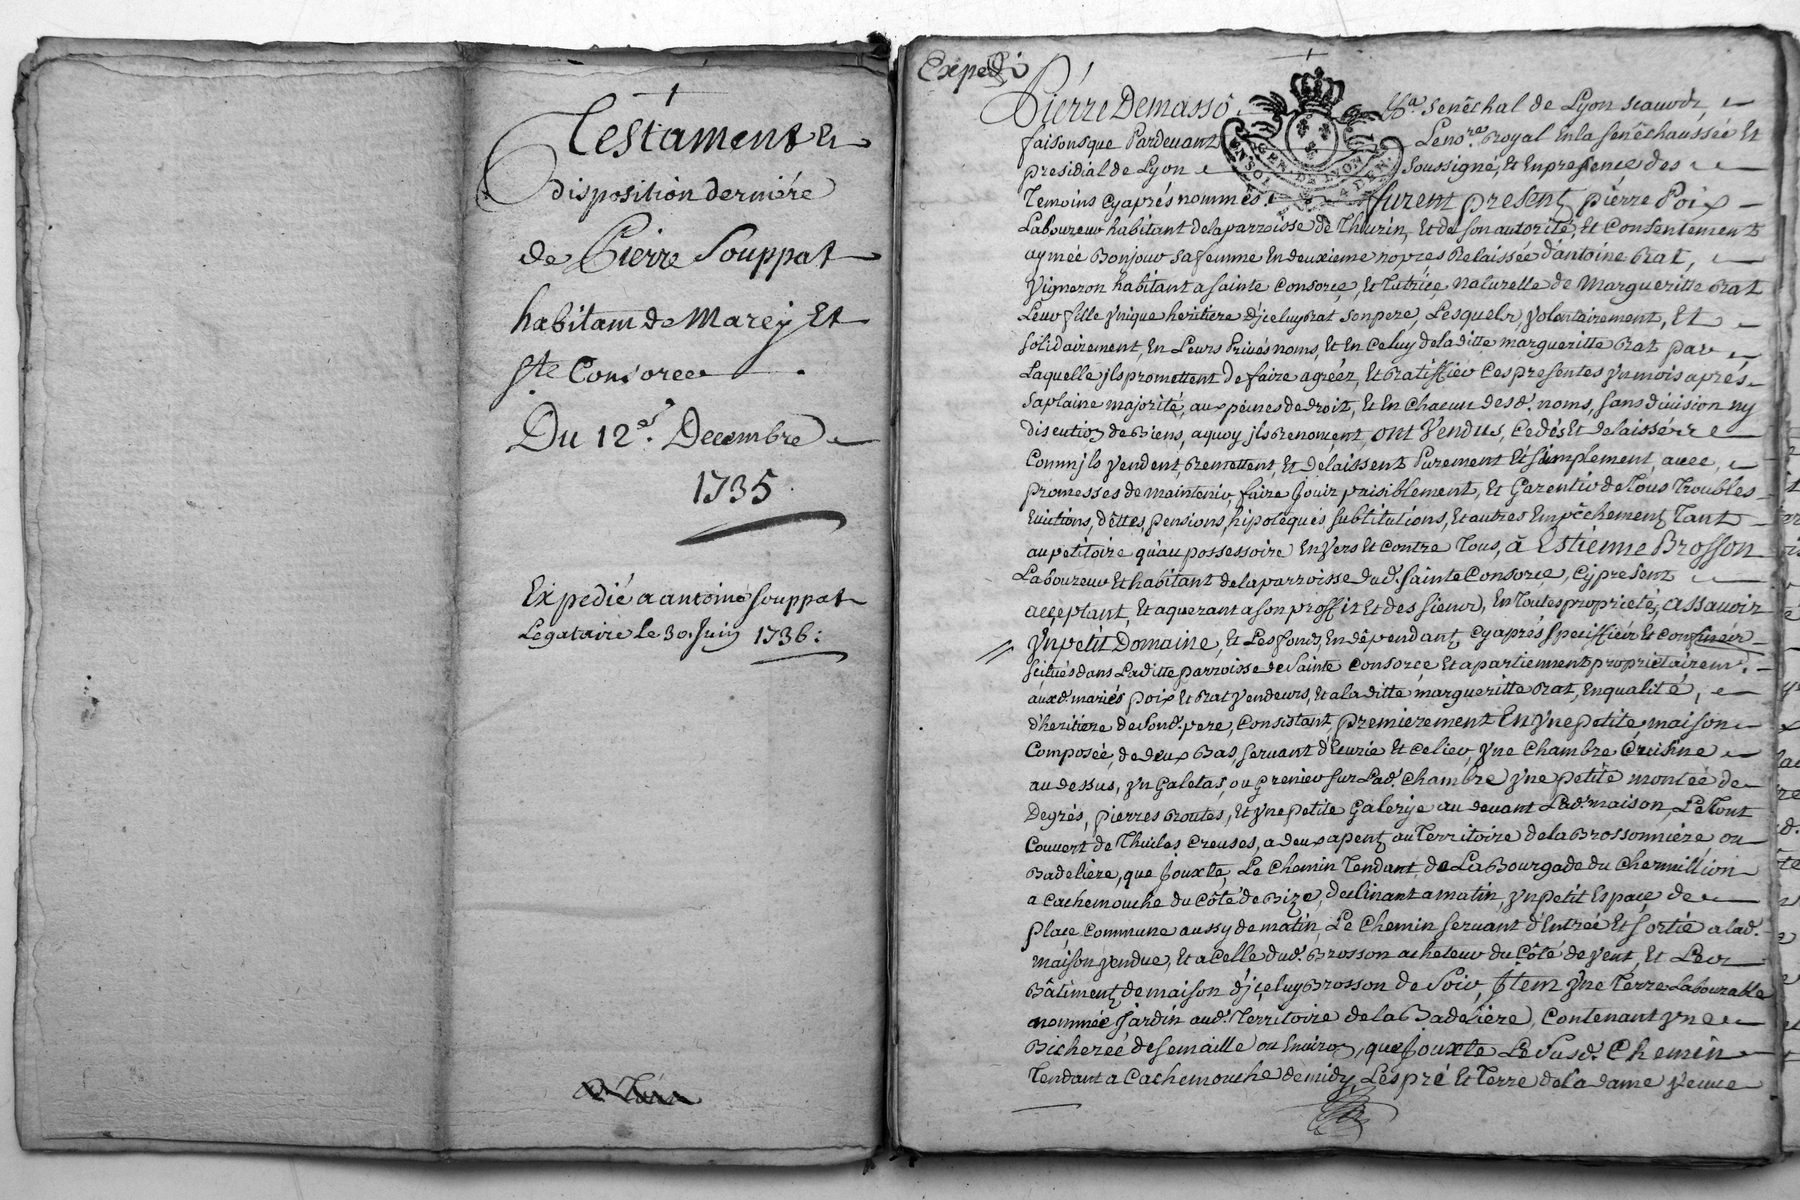 Testament Et
disposition derniére
de Pierre Souppat
habitant de Marcy Et
Ste Consorce
Du 12e. Decembre
1735
Expedié a antoine Souppat
Legataire le 30. Juin 1736:
Expedi
Pierre Demasso Senêchal de Lyon scauoir
faisons que Pardeuant Le nore. Royal En la senêchaussée Et
presidial de Lyon soussigné, Et En presence des
Temoins cy aprés nommés. furent presentz pierre Poix
Laboureur habitant de la parroisse de Thurin, Et de son autorité, Et Consentement
aymée Bonjour sa femme En deuxieme nopces Relaissée d'antoine Rat,
Vigneron habitant a sainte Consorce, Et Tutrice, naturelle de Margueritte Rat
Leur fille ynique heritiere d'jceluy Rat son pere, Lesquels, Volontairement, Et
solidairement, En Leurs Privés noms, Et En Celuy de laditte margueritte Rat par
Laquelle jls promettent de faire agréer, Et Ratiffier Ces presentes yn mois aprés
sa plaine majorité, aux peines de droit, Et En Chacun desd. noms, sans diuision ny
discution de Biens, a quoy jls Renoncent, ont Vendus, Cedés Et delaissés
Comm'jls Vendent, Remettent, Et delaissent Purement Et simplement, auec
promesses de maintenir, faire Jouir paisiblement, Et Garentir de Tous Troubles
Euictions, dêttes, pensions, hipoteques substitutions, Et autres Empêchementz Tant
au petitoire qu'au possessoire Enuers Et Contre Tous, à Estienne Brosson
Laboureur Et habitant de la parroisse dud. sainte Consorce, Cy present
acceptant, Et aquerant a son proffit Et des siens, En Toutes proprieté, assauoir
yn petit Domaine, Et Les fondz En dépendantz Cy aprés speciffiés Et Confinés
scitués dans Laditte parroisse de Sainte Consorce Et apartiennent proprietairemt.
auxd. mariés poix Et Rat Vendeurs, Et a la ditte margueritte Rat, En qualité,
d'heritiere de sond. pere, Consistant, premierement En yne petite maison
Composée, de deux Bas, seruant d'Ecurie Et Celier, yne Chambre Cuisine
au dessus, yn Galetas, ou Grenier sur Lad. Chambre yne petite montée de
Degrés, pierres Routes, Et yne petite Galerije au deuant Lad. maison, Le Tout
Couuert de Thuiles Creuses, a deux apentz au Territoire de la Brossonniere, ou
Badeliere, que Jouxte, Le Chemin Tendant de La Bourgade du Chermillion
a Cachemouche du Côté de Bize, declinant a matin, yn petit Espace de
place Commune aussy de matin, Le Chemin seruant d'Entrée Et sortie a lad.
maison Vendue, Et a Celle dud. Brosson acheteur du Côté de Vent, Et Les
Bâtimentz de maison d'jceluy Brosson de Soir, Jtem yne Terre Labourable
nommée Jardin aud. Territoire de la Badeliere, Contenant yne
Bicherée de semaille ou Enuiron, que Jouxte Le susd. Chemin
Tendant a Cachemouche de midy, Les pré Et Terre de la dame Veuue